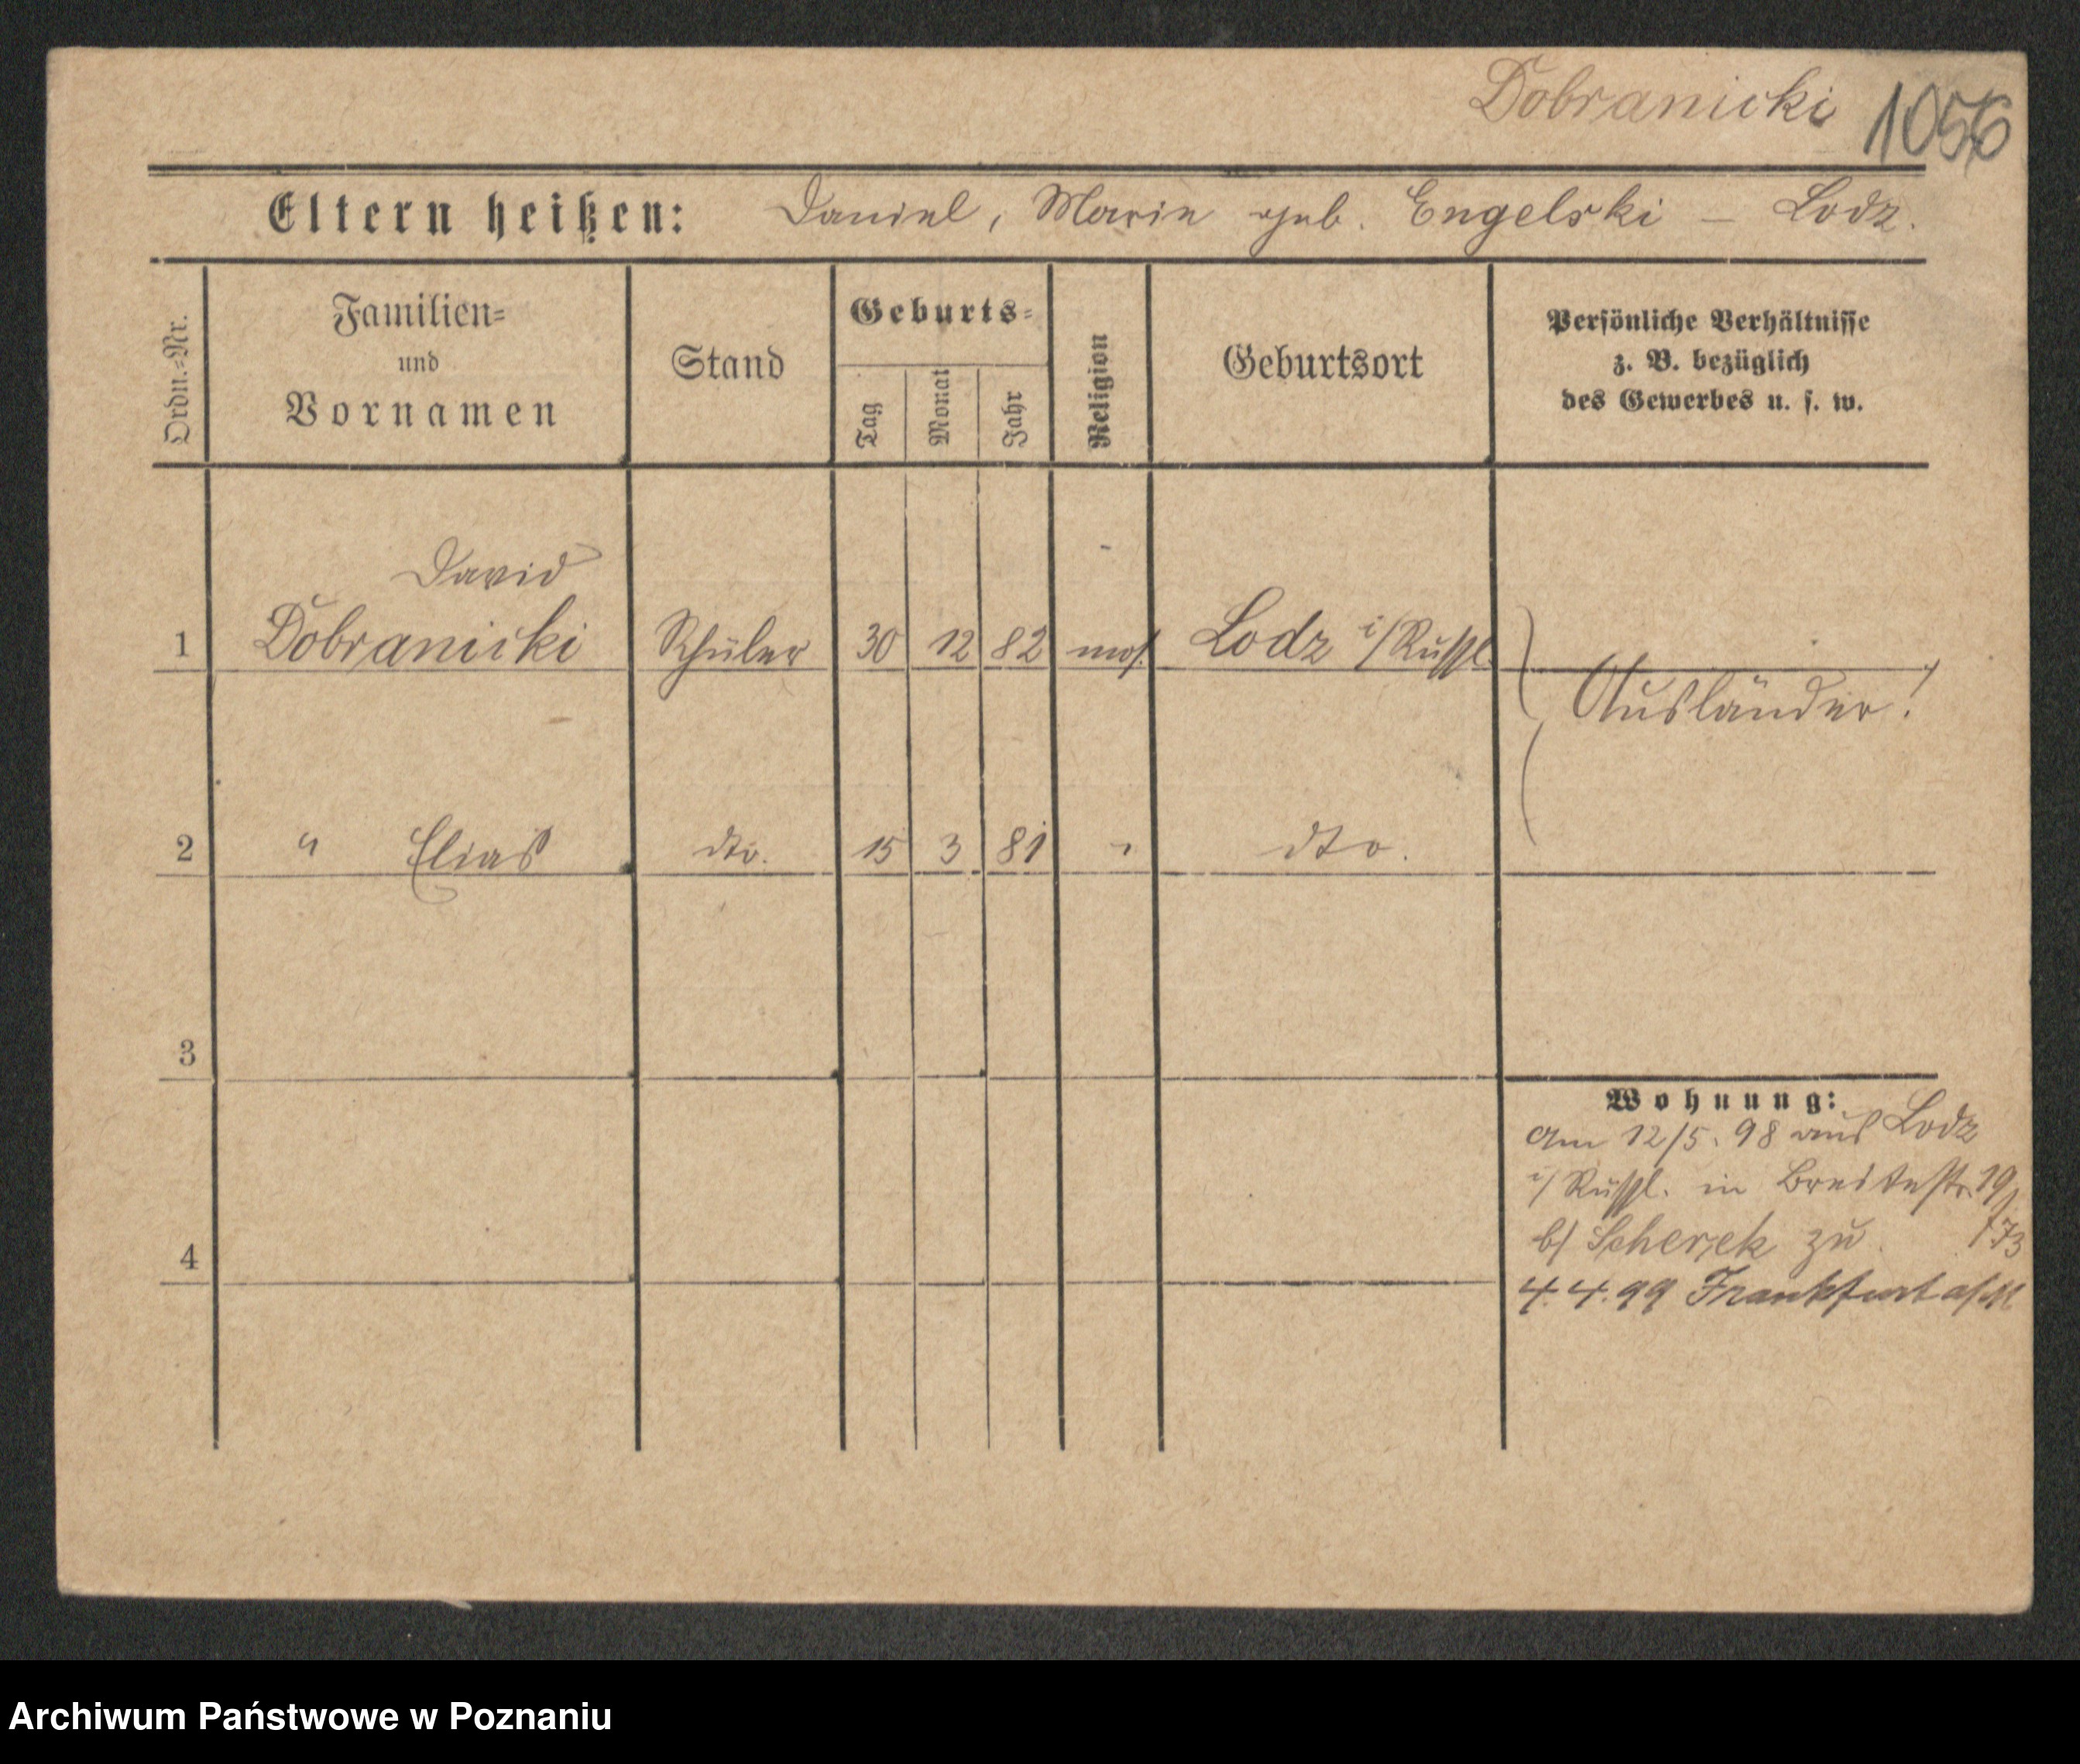 Dobranicki 1056
Eltern heißen: Daniel, Marie geb. Engelski – Lodz.
Ordn.-Nr.
Familien-
und
Vornamen
Stand
Geburts-
Tag
Monat
Jahr
Religion
Geburtsort
Persönliche Verhältnisse
z. B. bezüglich
des Gewerbes u. s. w.
David
1 Dobranicki Schüler 30 12 82 mos. Lodz i/Russl.
Ausländer!
2 " Elias dto. 15 3 81 " dto.
3
Wohnung:
Am 12/5. 98 aus Lodz
i/ Russl. in Breitestr. 19
b/ Scherek zu 173
4
4.4.99 Frankfurt a/M
Archiwum Państwowe w Poznaniu